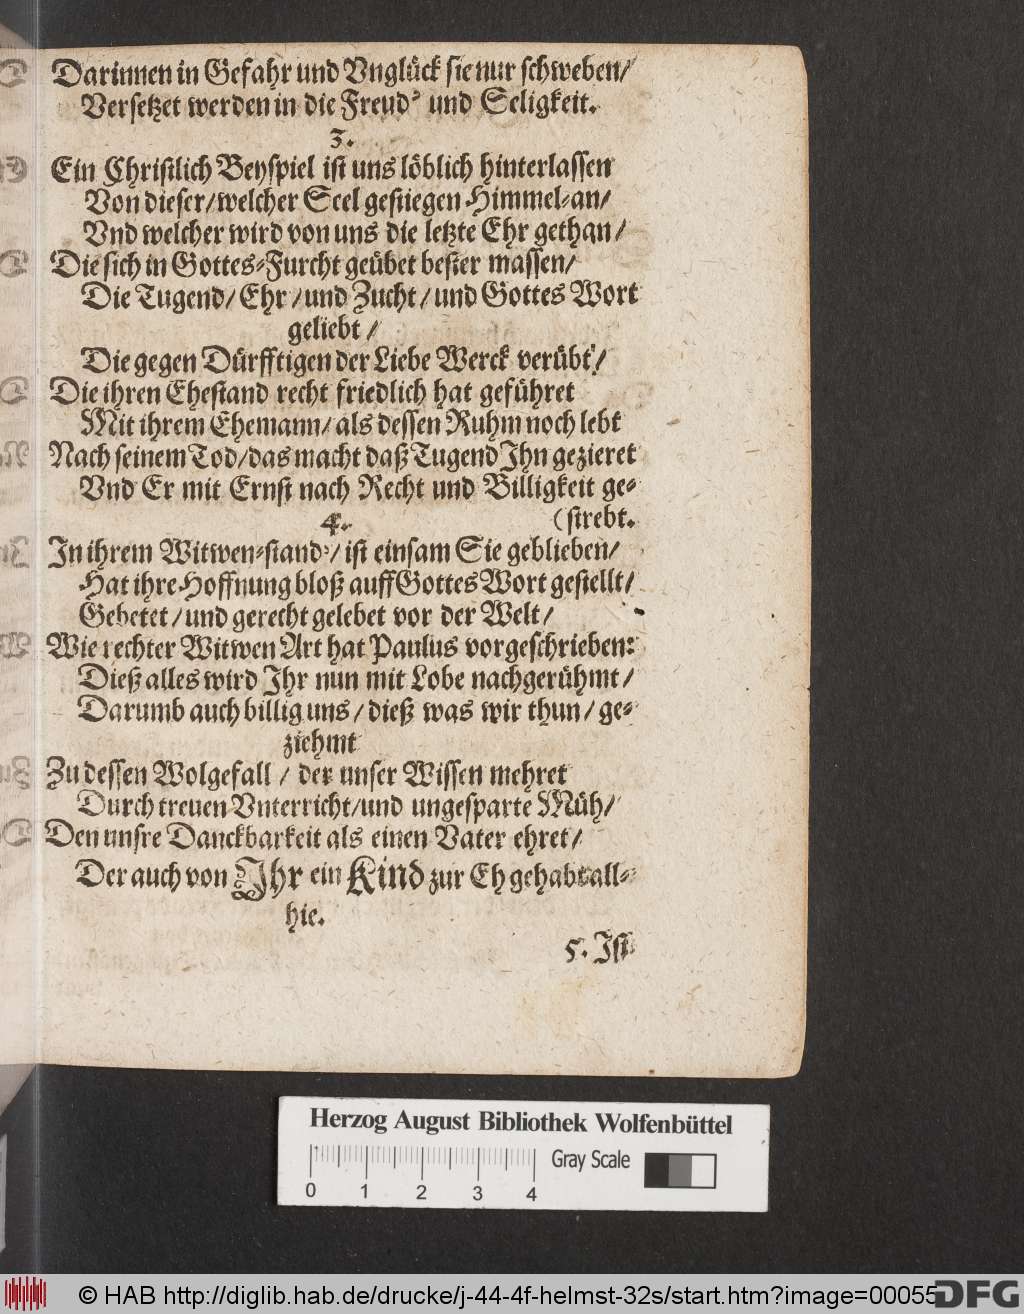 Darinnen in Gefahr und Vnglück sie nur schweben/
Versetzet werden in die Freud' und Seligkeit.
3.
Ein Christlich Beyspiel ist uns löblich hinterlassen
Von dieser/welcher Seel gestiegen Himmel-an/
Vnd welcher wird von uns die letzte Ehr gethan/
Die sich in Gottes-Furcht geübet bester massen/
Die Tugend/Ehr/und Zucht/und Gottes Wort
geliebt/
Die gegen Dürfftigen der Liebe Werck verübt/
Die ihren Ehestand recht friedlich hat geführet
Mit ihrem Ehemann/als dessen Ruhm noch lebt
Nach seinem Tod/das macht daß Tugend Ihn gezieret
Vnd Er mit Ernst nach Recht und Billigkeit ge-
(strebt.
4.
In ihrem Witwen-stand'/ist einsam Sie geblieben/
Hat ihre Hoffnung bloß auff Gottes Wort gestellt/
Gebetet/und gerecht gelebet vor der Welt/
Wie rechter Witwen Art hat Paulus vorgeschrieben:
Dieß alles wird Ihr nun mit Lobe nachgerühmt/
Darumb auch billig uns/dieß was wir thun/ge-
ziehmt
Zu dessen Wolgefall/der unser Wissen mehret
Durch treuen Vnterricht/und ungesparte Müh/
Den unsre Danckbarkeit als einen Vater ehret/
Der auch von Ihr ein Kind zur Eh gehabt all-
hie.
5. Ist
Herzog August Bibliothek Wolfenbüttel
Gray Scale
0 1 2 3 4
© HAB http://diglib.hab.de/drucke/j-44-4f-helmst-32s/start.htm?image=00055
DFG